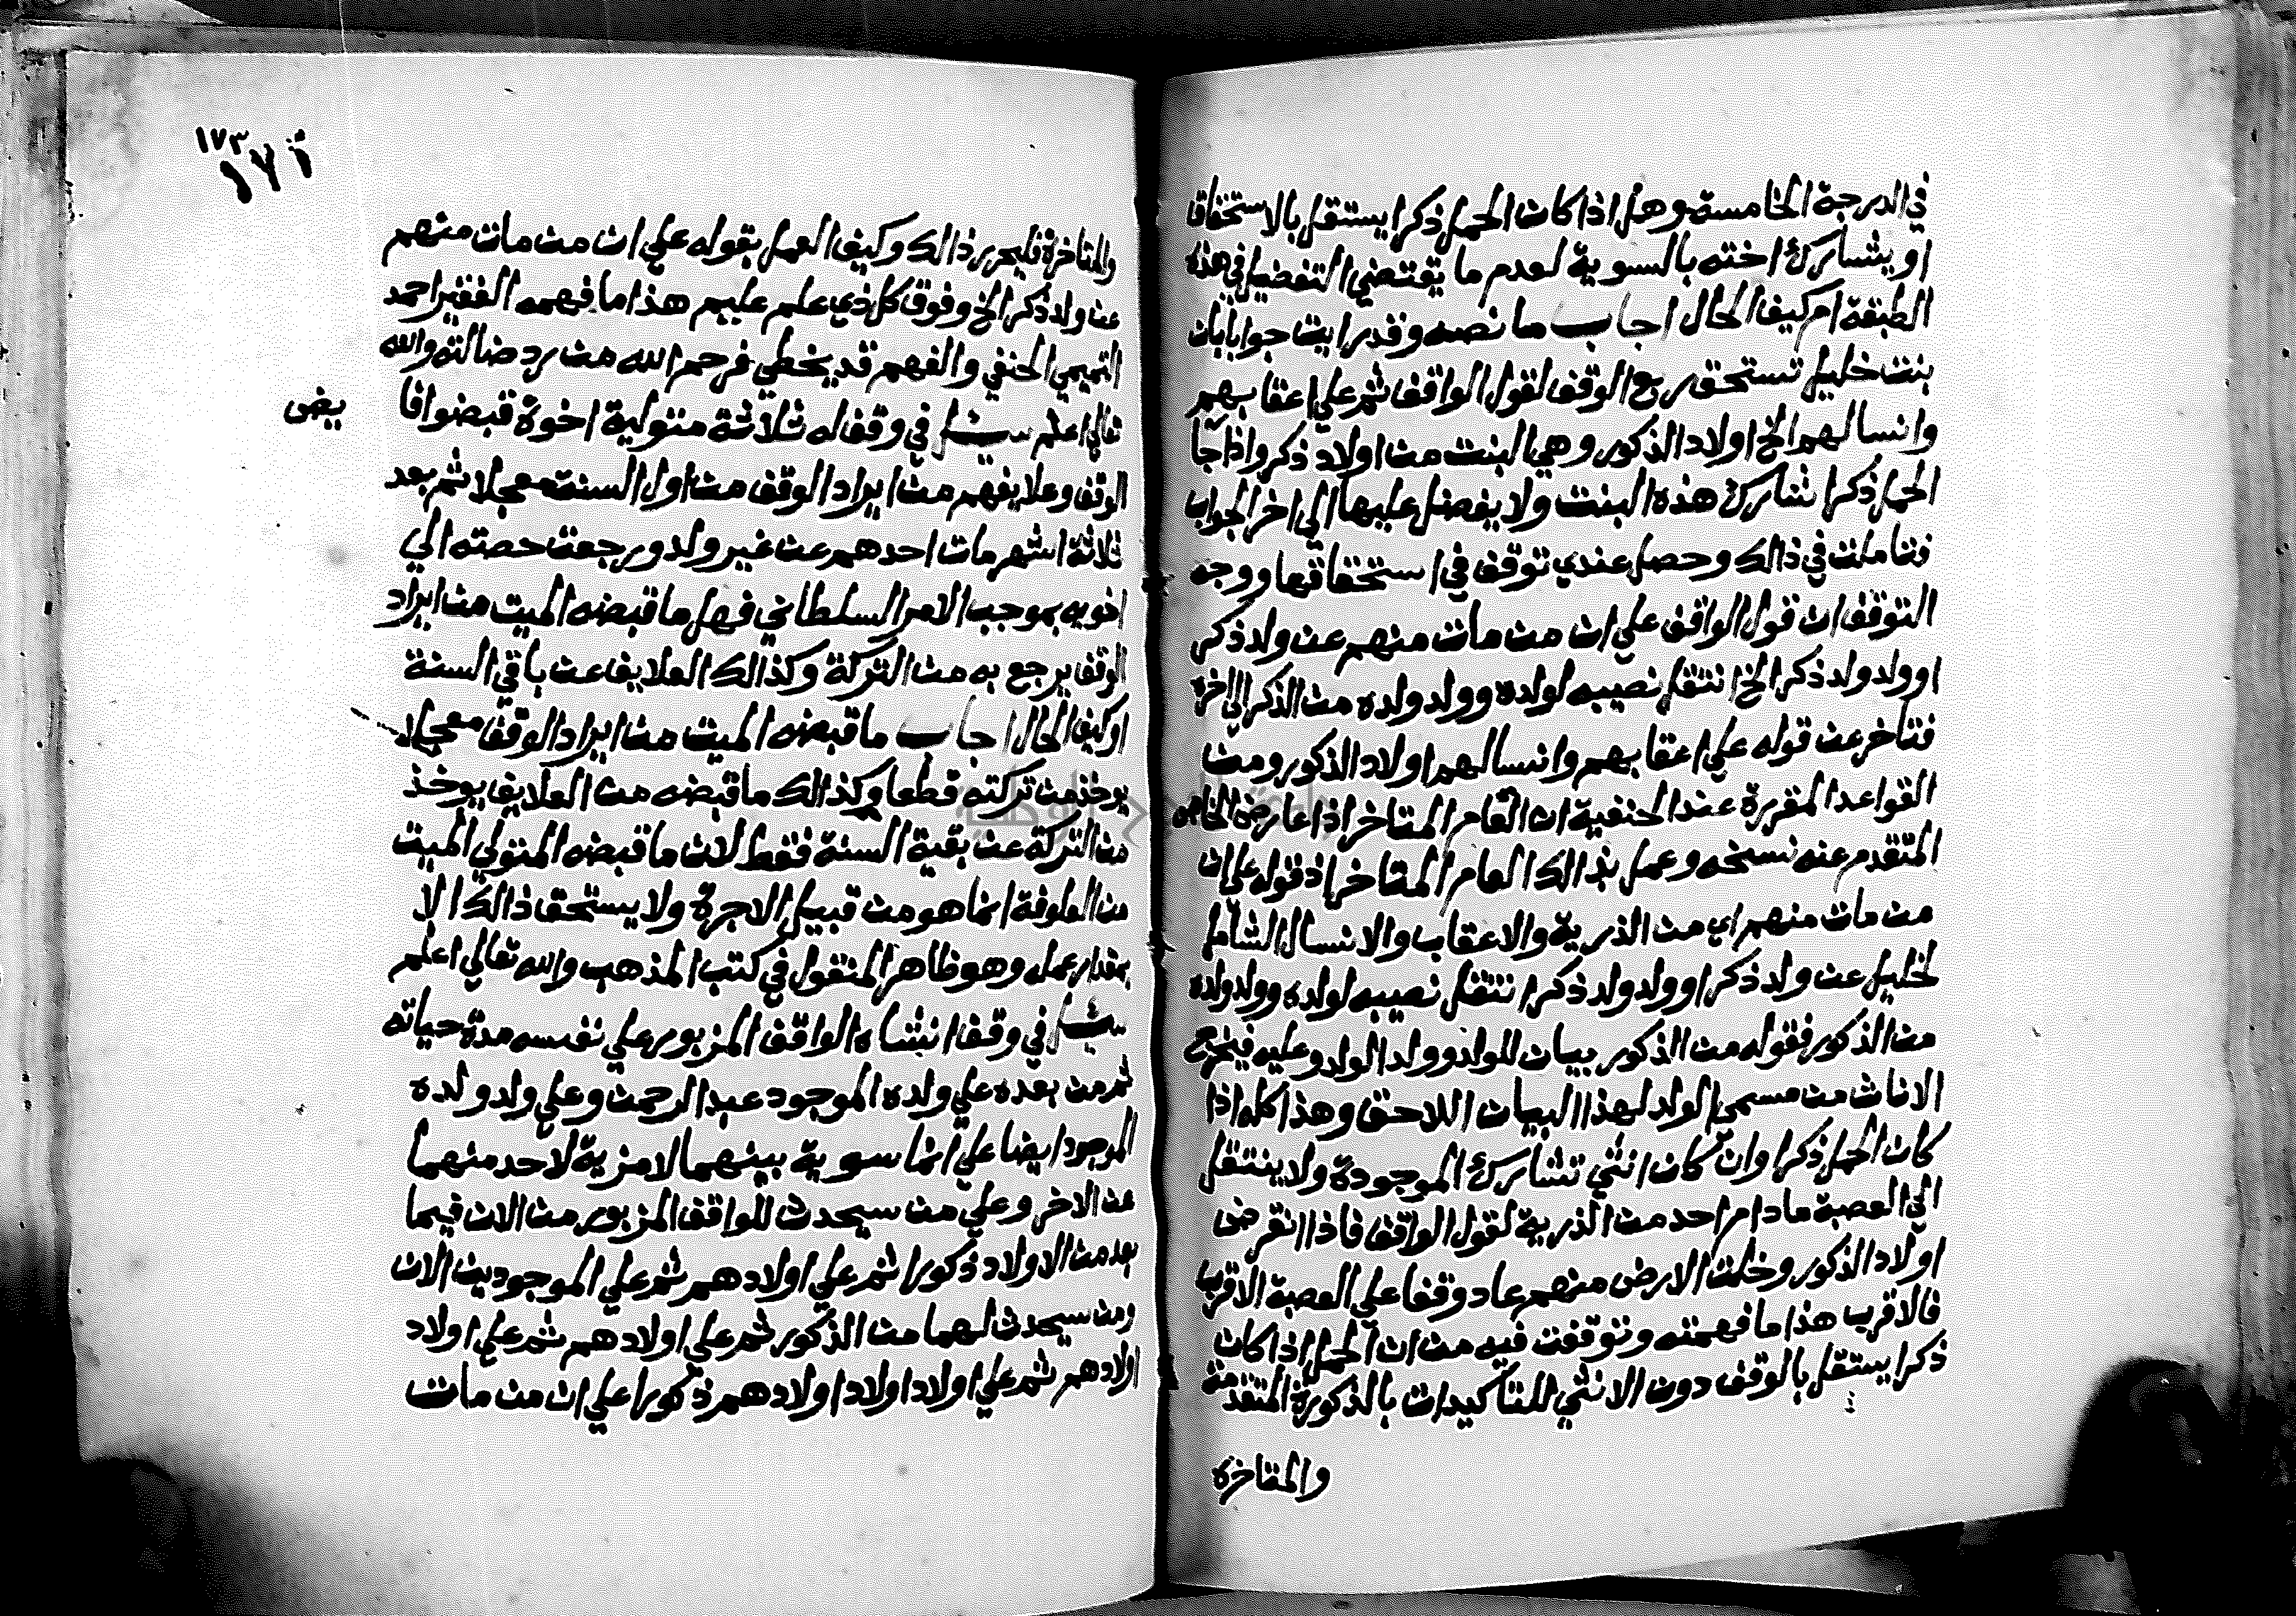 في الدرجة الخامسة وهل اذا كان الحمل ذكرا يستقل بالاستحقاق
او يشارك اخته بالسوية لعدم ما يقتضي التفضيل في هذه
الطبقة ام كيف الحال اجاب ما نصه وقد رايت جوابا بان
بنت خليل تستحق ريع الوقف لقول الواقف ثم علي اعقابهم
وانسالهم الخ اولاد الذكور وهي البنت من اولاد ذكر واذا جآ
الحمل ذكرا تشارك هذه البنت ولا يفضل عليها الي اخر الجواب
فتاملت في ذالك وحصل عندي توقف في استحقاقها ووجه
التوقف ان قول الواقف علي ان من مات منهم عن ولد ذكر
او ولد ولد ذكر الخ انتقل نصيبه لولده وولد ولده من الذكر الي اخره
فتاخر عن قوله علي اعقابهم وانسالهم اولاد الذكور ومن
القواعد المقررة عند الحنفية ان العام المتاخر اذا عارض الخاص
المتقدم عنه نسخه وعمل بذالك العام المتاخر اذ قوله علي ان
من مات منهم اي من الذرية والاعقاب والانسال الشامل
لخليل عن ولد ذكر او ولد ولد ذكر انتقل نصيبه لولده وولد ولده
من الذكور فقوله من الذكور بيان للولد وولد الولد وعليه فيخرج
الاناث من مسمي الولد لهذا البيان اللاحق وهذا كله اذا
كان الحمل ذكرا وان كان انثي تشارك الموجودة ولا ينتقل
الي العصبة ما دام احد من الذرية لقول الواقف فاذا انقرض
اولاد الذكور وخلت الارض منهم عاد وقفا علي العصبة الاقرب
فالاقرب هذا ما فهمته وتوقفت فيه من ان الحمل اذا كان
ذكرا يستقل بالوقف دون الانثي للتاكيدات بالذكورة المتقدمة
والمتاخرة
١٧٣
١٧٢
والمتاخرة فليحرر ذالك وكيف العمل بقوله علي ان من مات منهم
عن ولد ذكر الخ وفوق كل ذي علم عليم هذا ما فهمه الفقير احمد
التميمي الحنفي والفهم قد يخطي فرحم الله من رد ضالته والله
تعالي اعلم سئل في وقف له ثلاثة متولية اخوة قبضوا فا
يض
الوقف وعلايفهم من ايراد الوقف من اول السنة معجلا ثم بعد
ثلاثة اشهر مات احدهم عن غير ولد ورجعت حصته الي
اخويه بموجب الامر السلطاني فهل ما قبضه الميت من ايراد
الوقف يرجع به من التركة وكذالك العلايف عن باقي السنة
او كيف الحال اجاب ما قبضه الميت من ايراد الوقف معجلا
يوخذ من تركته قطعا وكذالك ما قبضه من العلايف يوخذ
من التركة عن بقية السنة فقط لان ما قبضه المتولي الميت
من العلوفة انما هو من قبيل الاجرة ولا يستحق ذالك الا
بمقدار عمله وهو ظاهر المنقول في كتب المذهب والله تعالي اعلم
سئل في وقف انشاه الواقف المزبور علي نفسه مدة حياته
ثم من بعده علي ولده الموجود عبد الرحمن وعلي ولد ولده
الموجود ايضا علي انها سوية بينهما لا مزية لاحد منهما
عن الاخر وعلي من سيحدث للواقف المزبور من الان فيما
بعد من الاولاد ذكورا ثم علي اولادهم ثم علي الموجودين الان
ومن سيحدث لهما من الذكور ثم علي اولادهم ثم علي اولاد
اولادهم ثم علي اولاد اولاد اولادهم ذكورا علي ان من مات